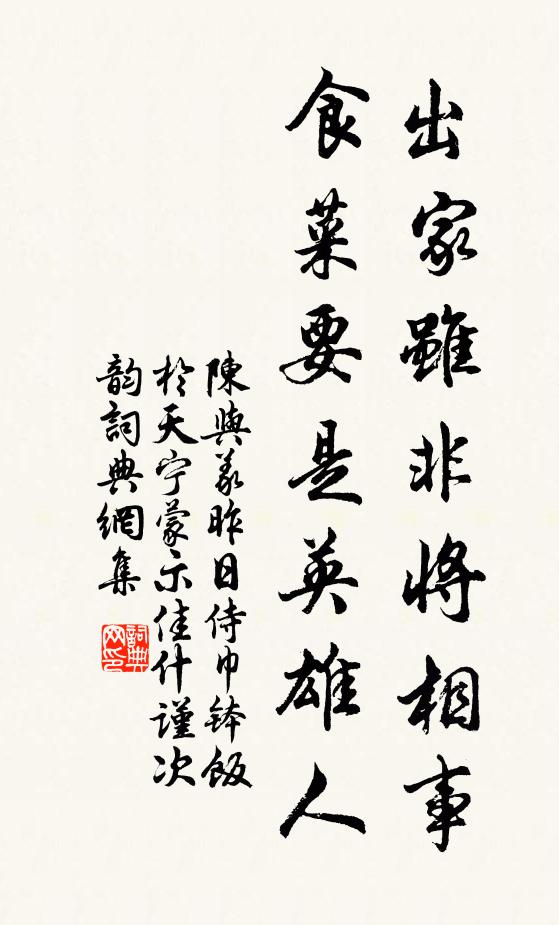 出家雖非將相事
食菜要是英雄人
陳與義昨日侍巾鉢飯
於天宁蒙示佳什謹次
韵詞典網集
詞典
网印